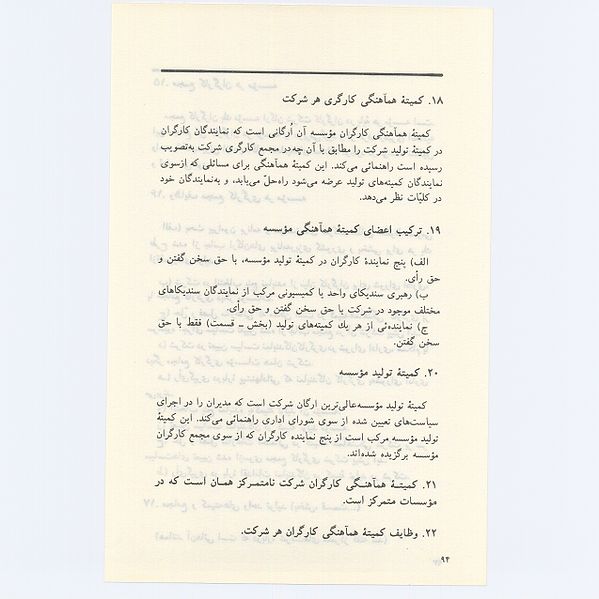 ۱۸. کمیتهٔ هم‌آهنگی کارگری هر شرکت
کمیتهٔ هم‌آهنگی کارگران مؤسسه آن اُرگانی است که نمایندگان کارگران
در کمیتهٔ تولید شرکت را مطابق با آن چه در مجمع کارگری شرکت به‌تصویب
رسیده است راهنمائی می‌کند. این کمیتهٔ هم‌آهنگی برای مسائلی که ازسوی
نمایندگان کمیته‌های تولید عرضه می‌شود راه‌حلّ می‌یابد، و به‌نمایندگان خود
در کلیّات نظر می‌دهد.
۱۹. ترکیب اعضای کمیتهٔ هم‌آهنگی مؤسسه
الف) پنج نمایندهٔ کارگران در کمیتهٔ تولید مؤسسه، با حق سخن گفتن و
حق رأی.
ب) رهبری سندیکای واحد یا کمیسیونی مرکب از نمایندگان سندیکاهای
مختلف موجود در شرکت با حق سخن گفتن و حق رأی.
ج) نماینده‌ئی از هر یك کمیته‌های تولید (بخش ـ قسمت) فقط با حق
سخن گفتن.
۲۰. کمیتهٔ تولید مؤسسه
کمیتهٔ تولید مؤسسه‌عالی‌ترین ارگان شرکت است که مدیران را در اجرای
سیاست‌های تعیین شده از سوی شورای اداری راهنمائی می‌کند. این کمیتهٔ
تولید مؤسسه مرکب است از پنج نماینده کارگران که از سوی مجمع کارگران
مؤسسه برگزیده شده‌اند.
۲۱. کمیتـهٔ هم‌آهنـگی کارگران شرکت نامتمـرکز همـان است که در
مؤسسات متمرکز است.
۲۲. وظایف کمیتهٔ هم‌آهنگی کارگران هر شرکت.
۹۴